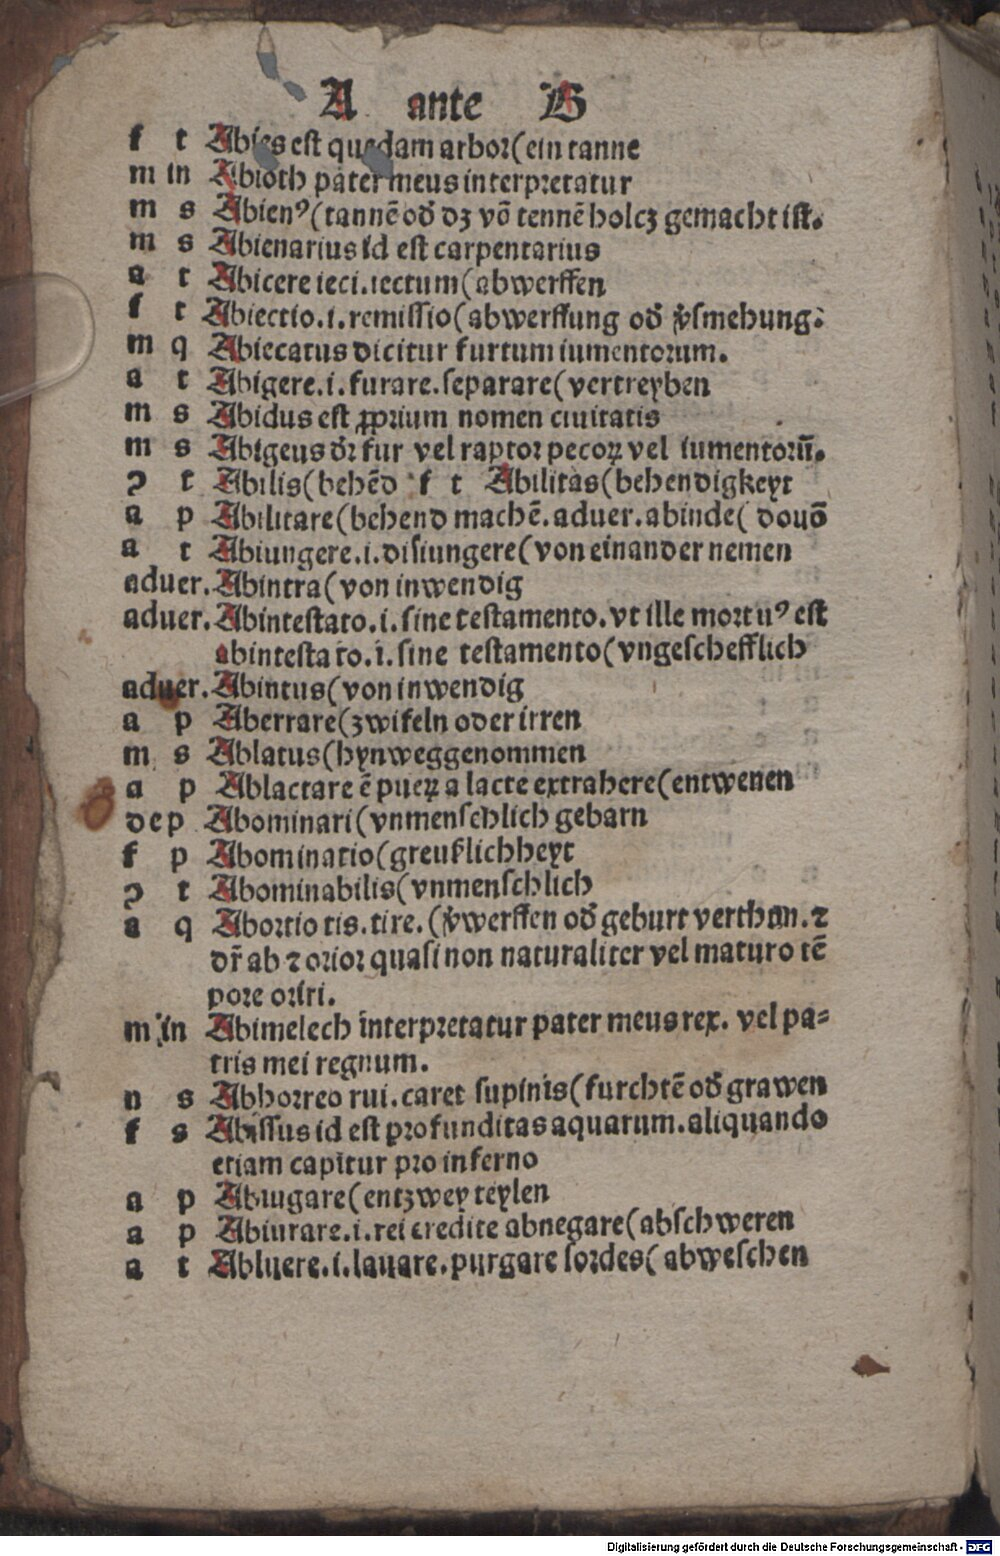 A ante B
f t Abies est quedam arbor(ein tanne
m in Abioth pater meus interpretatur
m s Abienꝰ(tannē od̓ dꝫ vō tennē holcz gemacht ist.
m s Abienarius id est carpentarius
a t Abicere ieci.iectum(abwerffen
f t Abiectio.i.remissio(abwerffung od̓ v̓smehung.
m q Abiecatus dicitur furtum iumentorum.
a t Abigere.i.furare.separare(vertreyben
m s Abidus est ꝓprium nomen ciuitatis
m s Abigeus dr̄ fur vel raptor pecoꝝ vel iumentorū.
ꝯ t Abilis(behēd f t Abilitas(behendigkeyt
a p Abilitare(behend machē.aduer.abinde( douō
a t Abiungere.i.disiungere(von einander nemen
aduer. Abintra(von inwendig
aduer. Abintestato.i.sine testamento.vt ille mortuꝰ est
abintestato.i.sine testamento(vngeschefflich
aduer. Abintus(von inwendig
a p Aberrare(zwifeln oder irren
m s Ablatus(hynweggenommen
a p Ablactare ē pueꝝ a lacte extrahere(entwenen
dep Abominari(vnmenschlich gebarn
f p Abominatio(greuklichheyt
ꝯ t Abominabilis(vnmenschlich
a q Abortio tis.tire.(v̓werffen od̓ geburt verthun.⁊
dr̄ ab ⁊ orior quasi non naturaliter vel maturo tē
pore oriri.
m in Abimelech interpretatur pater meus rex. vel pa-
tris mei regnum.
n s Abhorreo rui.caret supinis(furchtē od̓ grawen
f s Abissus id est profunditas aquarum.aliquando
etiam capitur pro inferno
a p Abiugare(entzwey teylen
a p Abiurare.i.rei credite abnegare(abschweren
a t Abluere.i.lauare.purgare sordes(abweschen
Digitalisierung gefördert durch die Deutsche Forschungsgemeinschaft - DFG